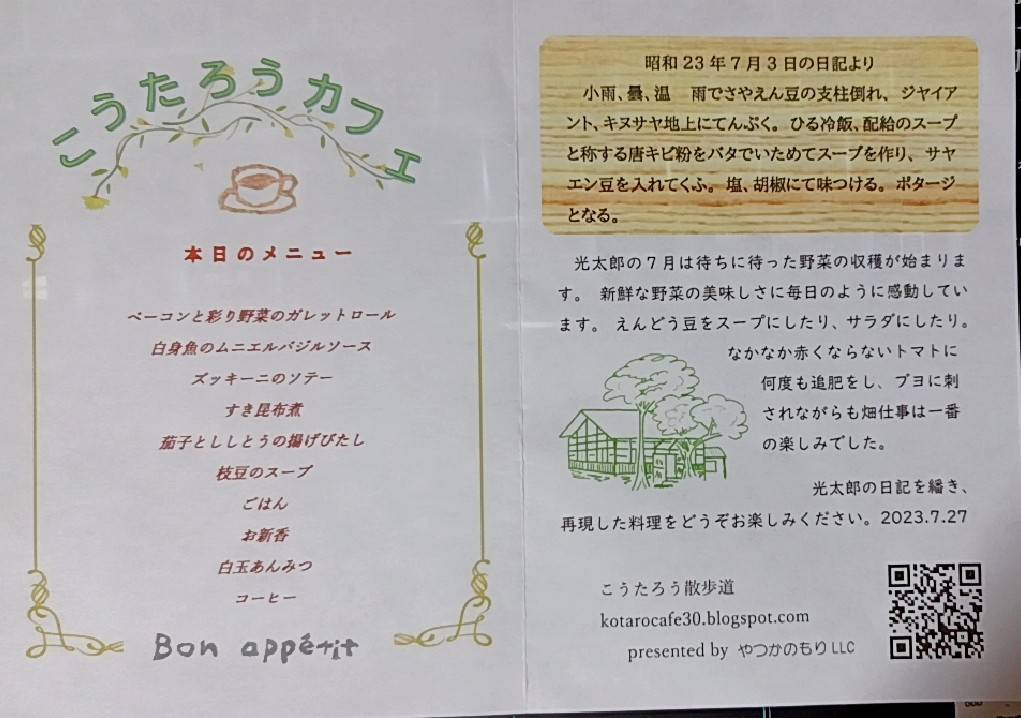 こうたろうカフェ
本日のメニュー
ベーコンと彩り野菜のガレットロール
白身魚のムニエルバジルソース
ズッキーニのソテー
すき昆布煮
茄子とししとうの揚げびたし
枝豆のスープ
ごはん
お新香
白玉あんみつ
コーヒー
Bon appétit
昭和23年7月3日の日記より
小雨、曇、温 雨でさやえん豆の支柱倒れ、ジヤイア
ント、キヌサヤ地上にてんぷく。ひる冷飯、配給のスープ
と称する唐キビ粉をバタでいためてスープを作り、サヤ
エン豆を入れてくふ。塩、胡椒にて味つける。ポタージ
となる。
光太郎の7月は待ちに待った野菜の収穫が始まりま
す。新鮮な野菜の美味しさに毎日のように感動してい
ます。えんどう豆をスープにしたり、サラダにしたり。
なかなか赤くならないトマトに
何度も追肥をし、ブヨに刺
されながらも畑仕事は一番
の楽しみでした。
光太郎の日記を繙き、
再現した料理をどうぞお楽しみください。2023.7.27
こうたろう散歩道
kotarocafe30.blogspot.com
presented by やつかのもりLLC